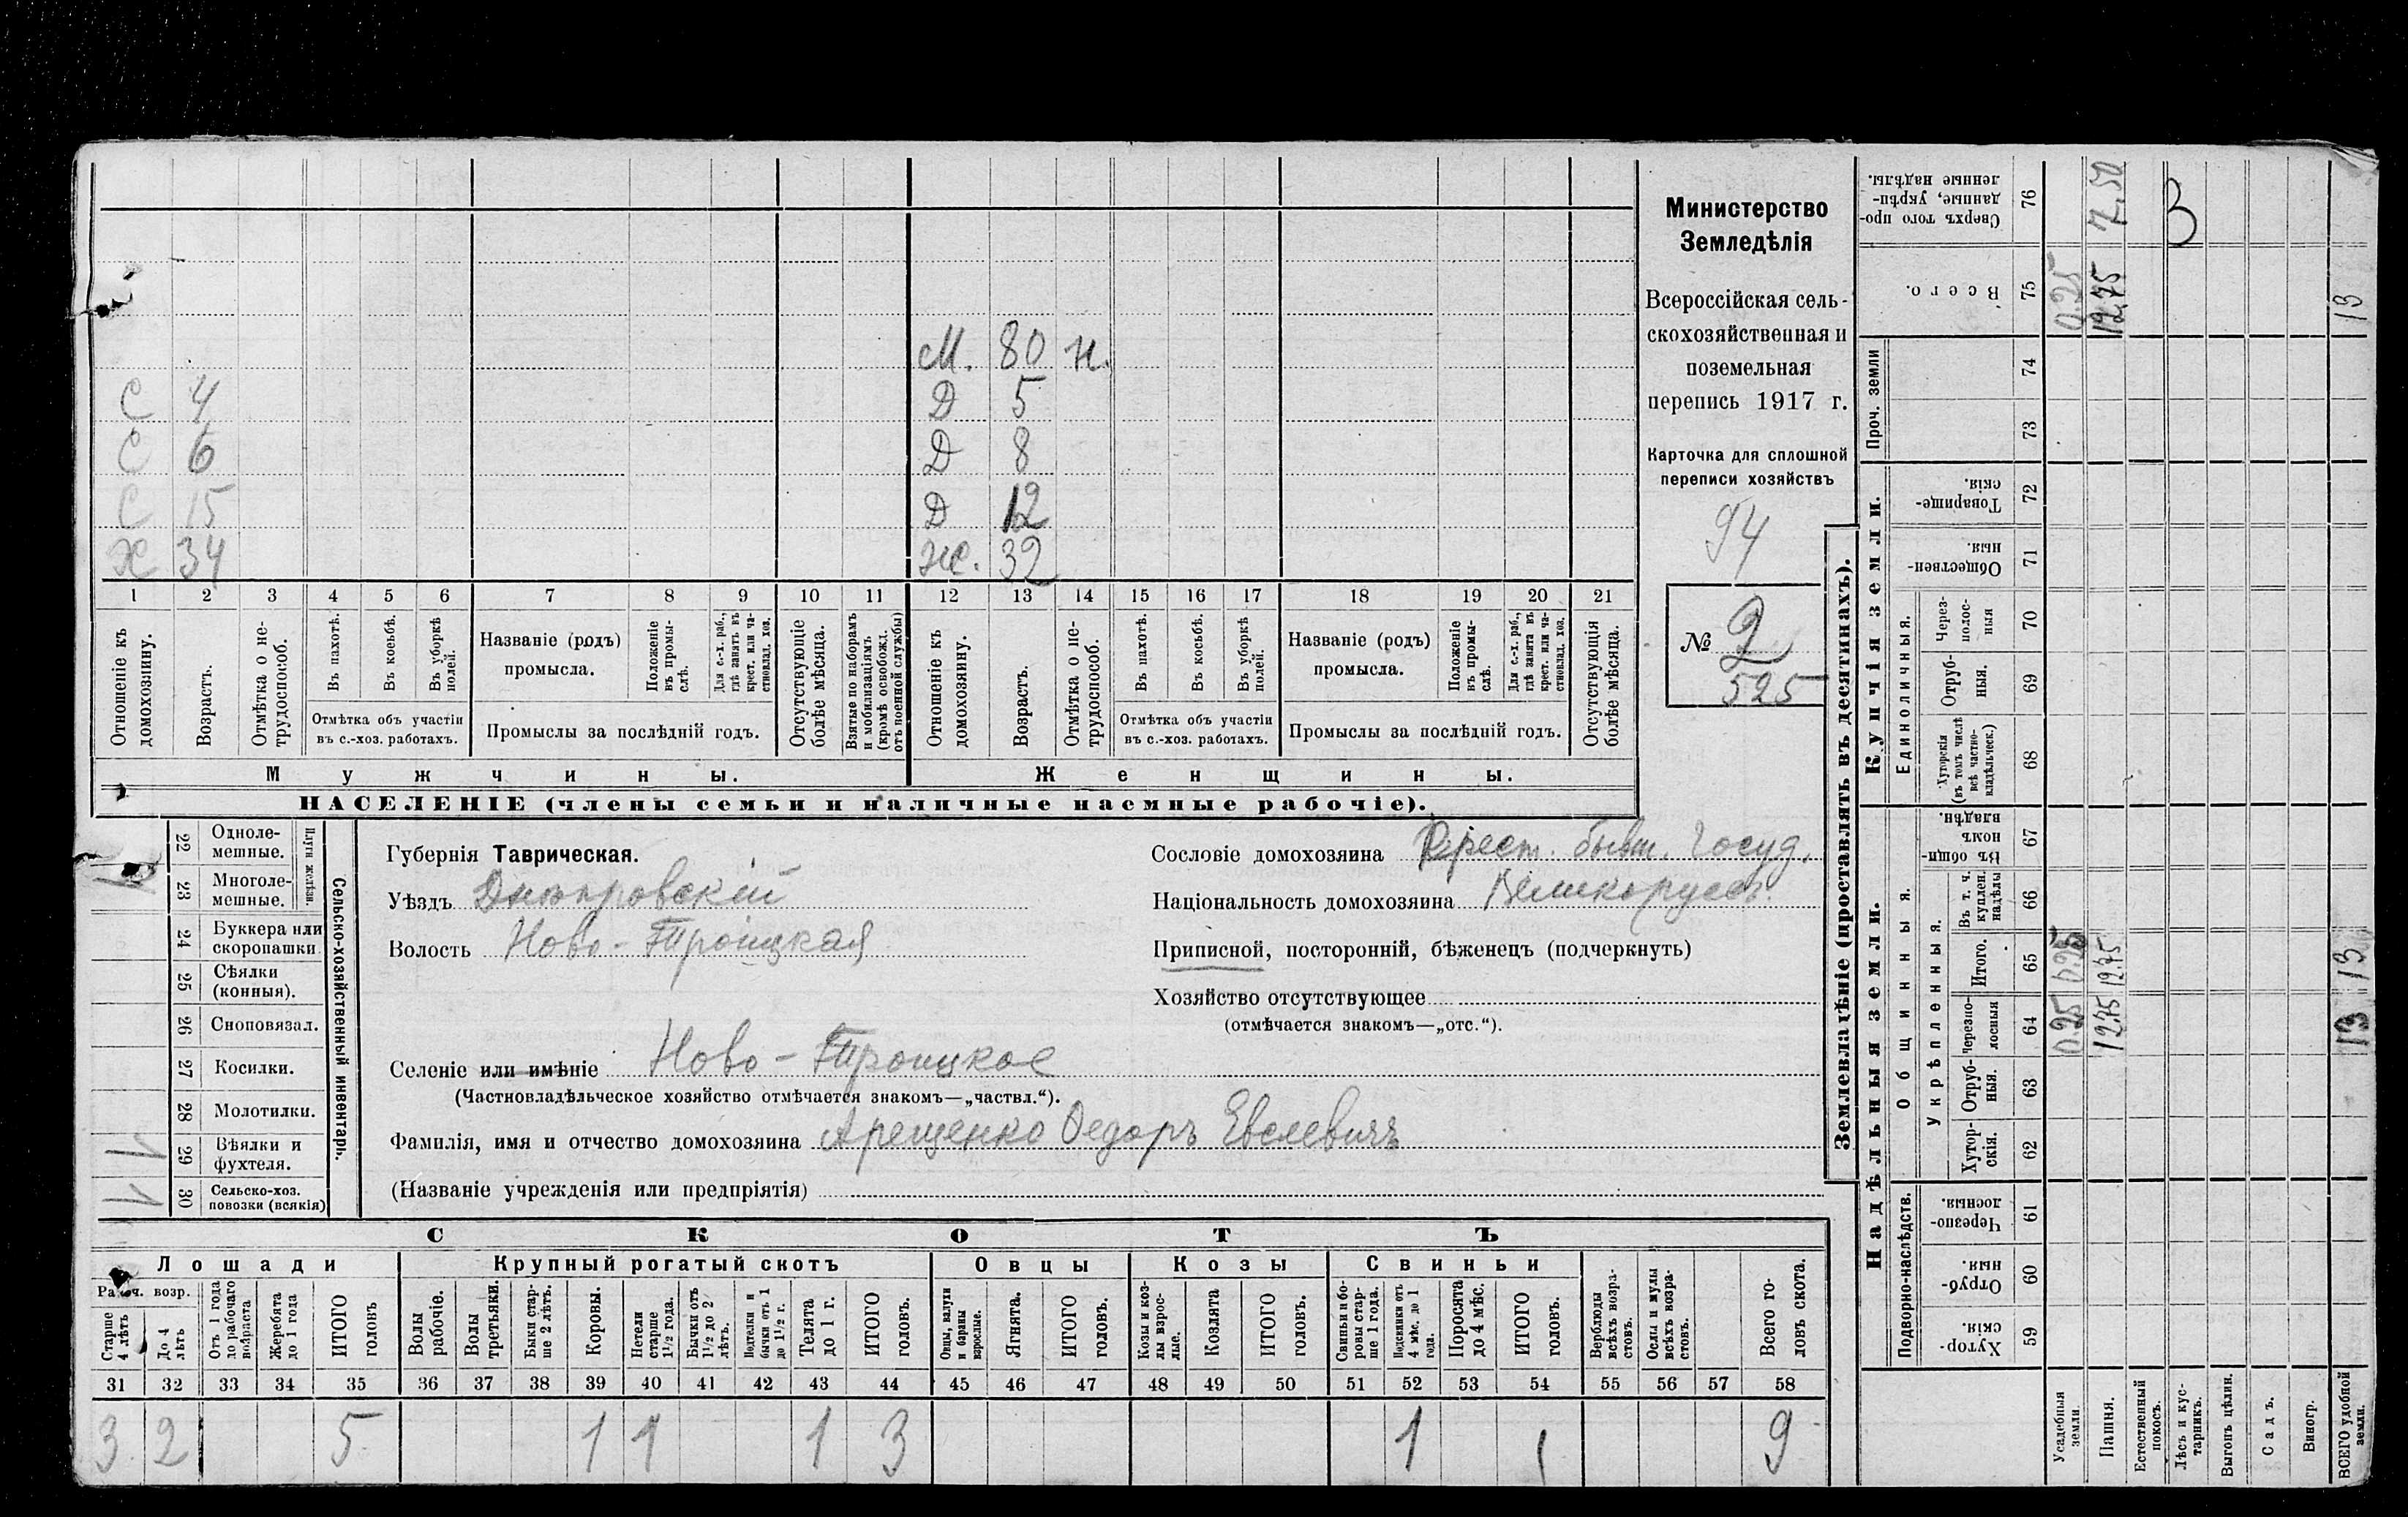 М. 80 н.
С 4 Д 5
С 6 Д 8
С 15 Д 12
Х 34 Ж. 32
1 2 3 4 5 6 7 8 9 10 11 12 13 14 15 16 17 18 19 20 21
Отношеніе къ домохозяину.
Возрастъ.
Отмѣтка о нетрудоспособ.
Въ пахотѣ.
Въ косьбѣ.
Въ уборкѣ полей.
Отмѣтка объ участіи
въ с.-хоз. работахъ.
Названіе (родъ)
промысла.
Положеніе въ промыслѣ.
Для с.-х. раб., гдѣ занятъ въ крест. или частновлад. хоз.
Промыслы за послѣдній годъ.
Отсутствующіе болѣе мѣсяца.
Взятые по наборамъ и мобилизаціямъ (кромѣ освобожд. отъ военной службы)
Отношеніе къ домохозяину.
Возрастъ.
Отмѣтка о нетрудоспособ.
Въ пахотѣ.
Въ косьбѣ.
Въ уборкѣ полей.
Отмѣтка объ участіи
въ с.-хоз. работахъ.
Названіе (родъ)
промысла.
Положеніе въ промыслѣ.
Для с.-х. раб., гдѣ занята въ крест. или частновлад. хоз.
Промыслы за послѣдній годъ.
Отсутствующія болѣе мѣсяца.
Мужчины. Женщины.
НАСЕЛЕНІЕ (члены семьи и наличные наемные рабочіе).
Министерство
Земледѣлія
Всероссійская сель-
скохозяйственная и
поземельная
перепись 1917 г.
Карточка для сплошной
переписи хозяйствъ
94
№ 2
525
Сельско-хозяйственный инвентарь.
Плуги желѣзн.
22 Одноле-
мешные.
23 Многоле-
мешные.
24 Буккера или
скоропашки
25 Сѣялки
(конныя).
26 Сноповязал.
27 Косилки.
28 Молотилки.
29 Вѣялки и
фухтеля.
30 Сельско-хоз.
повозки (всякія)
Губернія Таврическая.
Уѣздъ Днѣпровскій
Волость Ново-Троицкая
Селеніе или имѣніе Ново-Троицкое
(Частновладѣльческое хозяйство отмѣчается знакомъ—„частвл.“).
Фамилія, имя и отчество домохозяина Арещенко Федоръ Евсеевичъ
(Названіе учрежденія или предпріятія)
Сословіе домохозяина Крест. бывш. Госуд.
Національность домохозяина Великоруссъ.
Приписной, посторонній, бѣженецъ (подчеркнуть)
Хозяйство отсутствующее
(отмѣчается знакомъ—„отс.“).
СКОТЪ
Лошади Крупный рогатый скотъ Овцы Козы Свиньи
Рабоч. возр.
Старше 4 лѣтъ
До 4 лѣтъ
Отъ 1 года до рабочаго возраста
Жеребята до 1 года
ИТОГО головъ
Волы рабочіе.
Волы третьяки.
Быки старше 2 лѣтъ.
Коровы.
Нетели старше 1½ года.
Бычки отъ 1½ до 2 лѣтъ.
Подтелки и бычки отъ 1 до 1½ г.
Телята до 1 г.
ИТОГО головъ.
Овцы, валухи и бараны взрослые.
Ягнята.
ИТОГО головъ.
Козы и козлы взрослые.
Козлята
ИТОГО головъ.
Свиньи и боровы старше 1 года.
Подсвинки отъ 4 мѣс. до 1 года.
Поросята до 4 мѣс.
ИТОГО головъ.
Верблюды всѣхъ возрастовъ.
Ослы и мулы всѣхъ возрастовъ.
Всего головъ скота.
31 32 33 34 35 36 37 38 39 40 41 42 43 44 45 46 47 48 49 50 51 52 53 54 55 56 57 58
3 2 5 1 1 1 3 1 1 9
Землевладѣніе (проставлять въ десятинахъ).
Надѣльныя земли. Купчія земли. Проч. земли
Подворно-наслѣдств.
Общинныя.
Укрѣпленныя.
Единоличныя.
59 Хуторскія.
60 Отрубныя.
61 Черезполосныя.
62 Хуторскія.
63 Отрубныя.
64 Черезполосныя
65 Итого.
66 Въ т. ч. куплен. надѣлы
67 Въ общинномъ владѣн.
68 Хуторскія (въ томъ числѣ всѣ частновладѣльческ.)
69 Отрубныя.
70 Черезполосныя
71 Общественныя.
72 Товарищескія.
73
74
75 Всего.
76 Сверхъ того проданные, укрѣпленные надѣлы.
Усадебныя земли. 0.25 0.25 0.25
Пашня. 12.75 12.75 12.75 7.50
Естественный покосъ.
Лѣсъ и кустарникъ.
Выгонъ цѣлин.
Садъ.
Виногр.
ВСЕГО удобной земли. 13 13 13